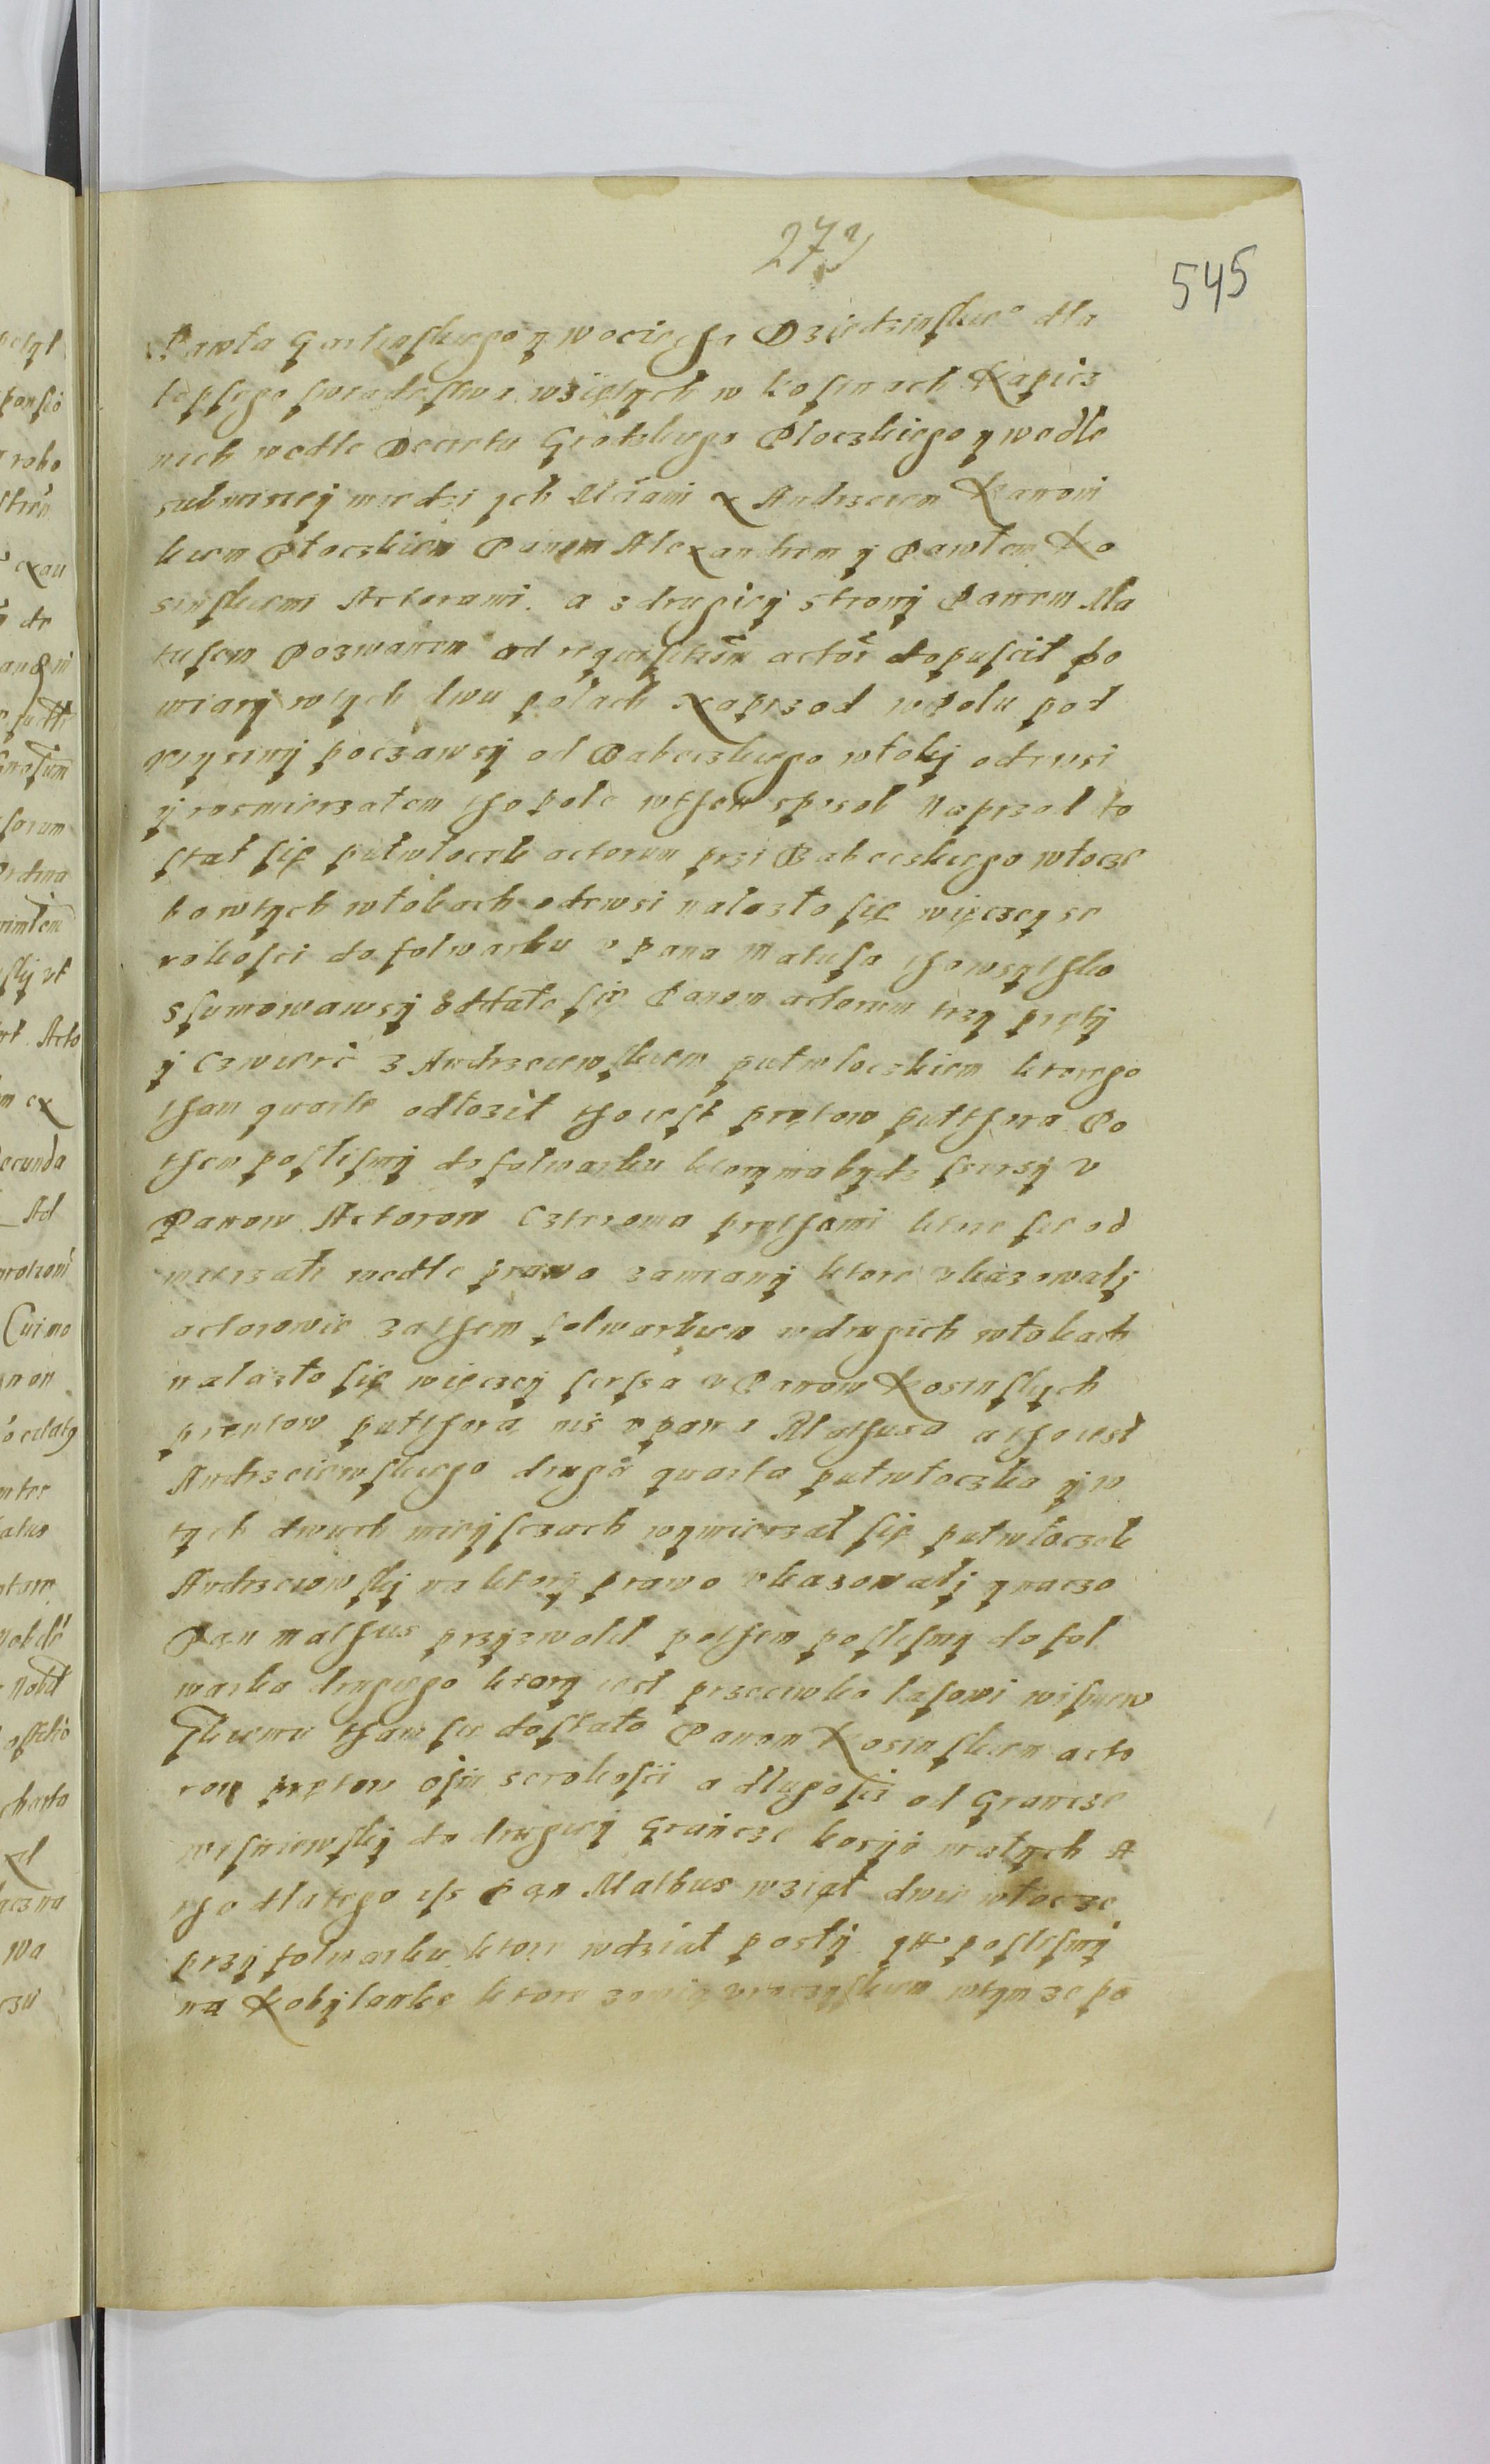 545
Pawła y Wociecha Dziedzinskie° dla
lepszego swiadestwa wziętych w Kosinach Kapicz
nich wedle Decretu Grotzkiego Płoczkiego y wedle
submissey miedzi ych Mciami x Andrzeiem Kanoni
kiem Płoczkiem Panem Alexandrem y Pawłem Ko
sinskiemi Actorami a z drugiey strony Panem Ma
tusem Pozwanem ad actor dopuscił po
miary w tych dwu polach Naprzod w polu pod
począwsy od Babeczkiego włoky ode wsi
y rosmierzałem tho pole w then sposob Naprzod do
stał się pułwłocek actorum przi Babeczkiego włocze
bo w tych włokach ode wsi nalazło się więczey se
rokosci do folwarku v Pana Matusa tho wsythko
ssumowawsy oddało się Panom actorum trzy pręty
y czwierć z Andrzeiewskiem pułwloczkiem ktorego
tham quarte odłoził tho iest prętow pułthora Po
them poslismy do folwarku ktory ma bydz serszy v
Panow Actorow cztrzema prethami ktore sie od
mierzało wedle prawa zamiany ktore vkazowały
actorowie za them folwarkiem w drugich włokach
nalazło się więczey sersza v Panow Kosinskych
prentow pułthora nis v pana Mathusa a tho iest
Andrzeiewskiego druga quarta pułwłoczka y w
tych dwuch mieysczach wymierzał się pułwłoczek
Andrzeiowsky na ktory prawo vkazowały ynaczo
Pan Mathus przyzwolił pothem poslismy do fol
warka drugiego ktory iest przeciwko lasowi wisniew
skiemu tham sie dostało Panom Kosinskiem acto
rom prętow osm serokosci a długosci od Granicze
wisniewsky do drugiey Granicze kosyn małych A
tho dlatego iss Pan Mathus wziął dwie włocze
przy folwarku ktore w dział posły poslismy
na Kobylanke ktore w tymze po